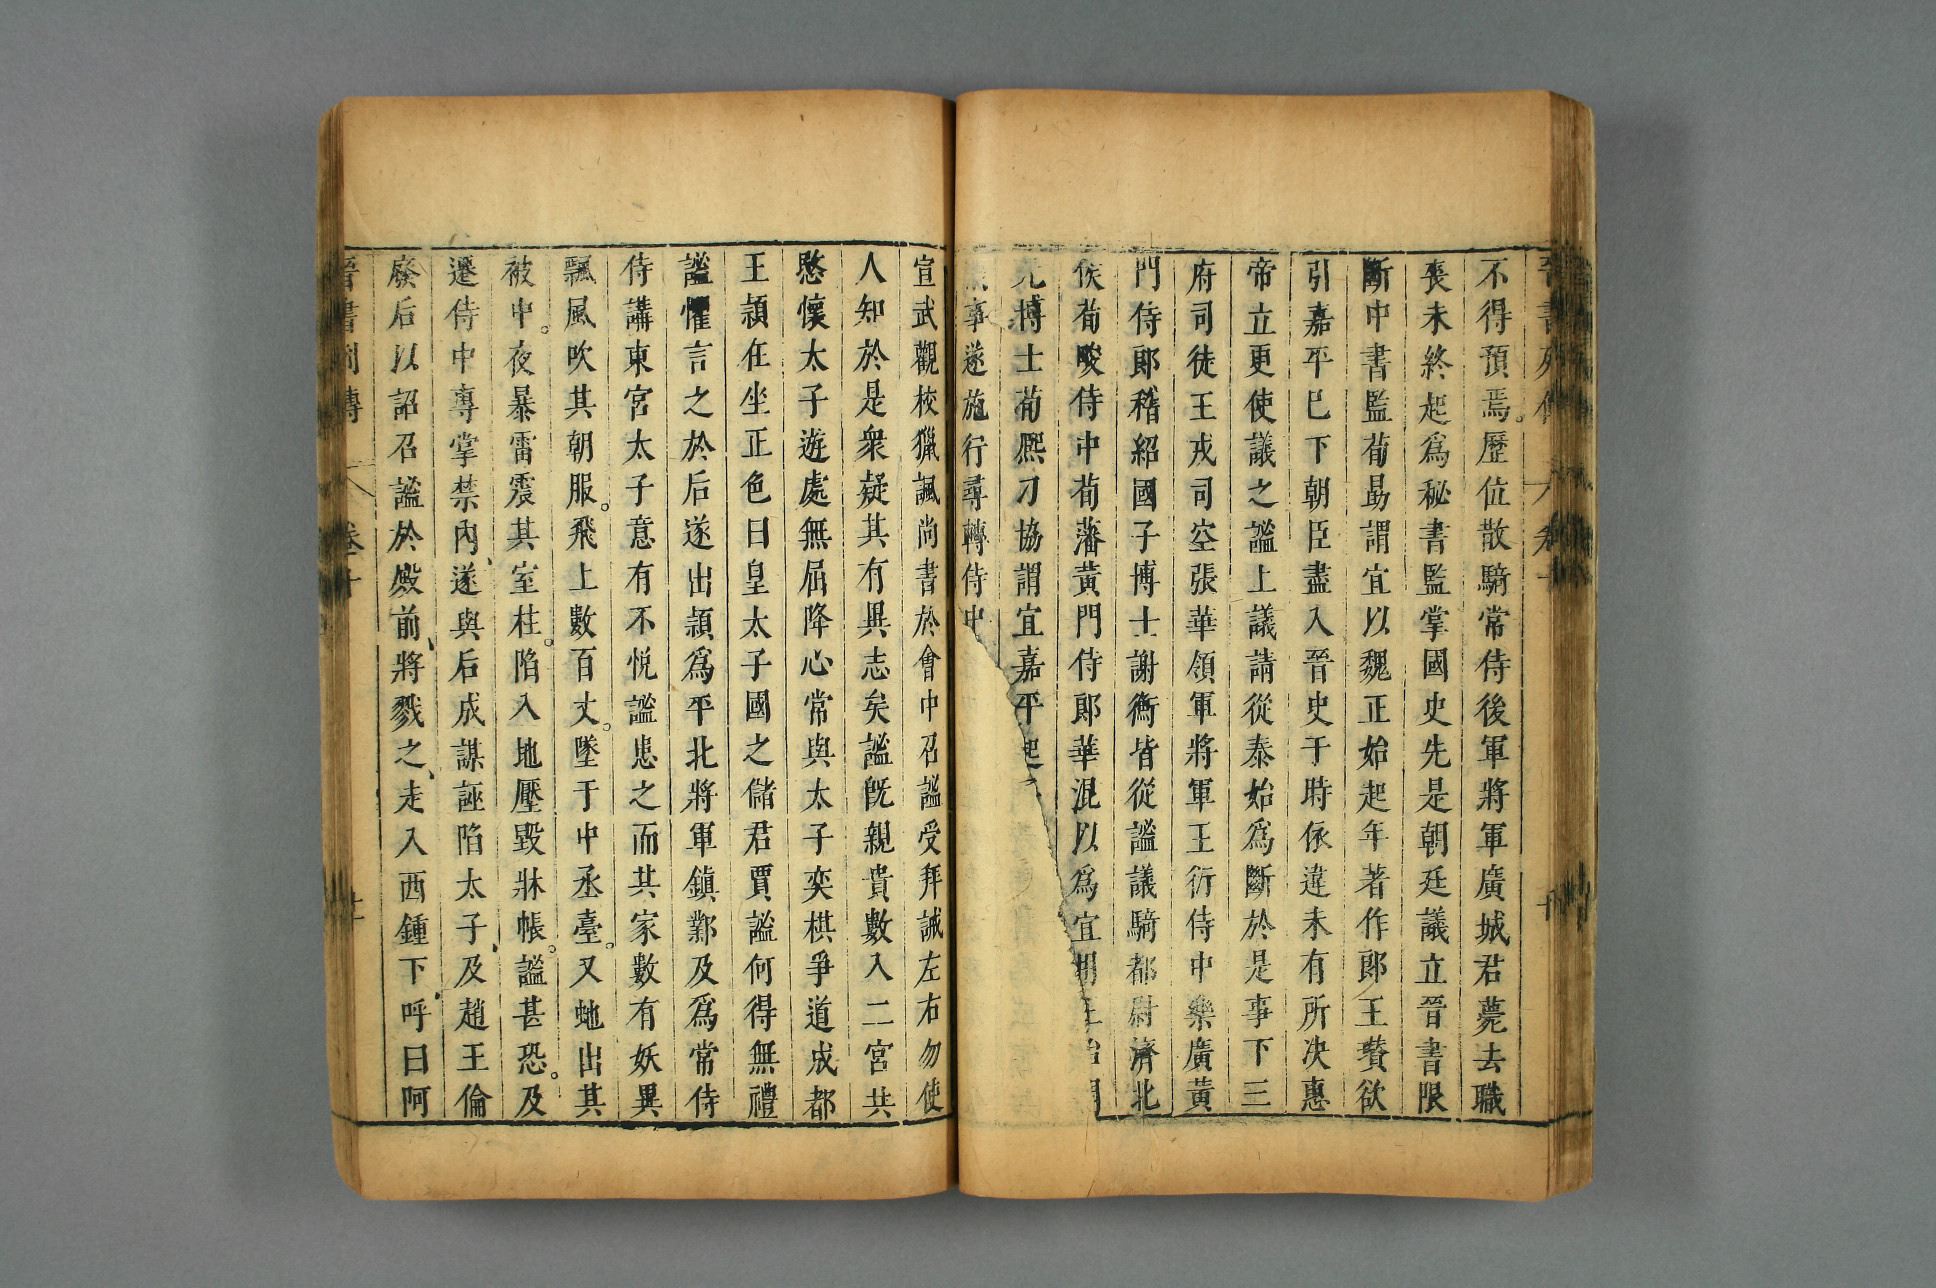 晉書列傳 卷十
不得預焉。歷位散騎常侍後軍將軍廣城君薨去職
喪未終起爲秘書監掌國史先是朝廷議立晉書限
斷中書監荀勗謂宜以魏正始起年著作郎王瓚欲
引嘉平巳下朝臣盡入晉史于時依違未有所決惠
帝立更使議之謐上議請從泰始爲斷於是事下三
府司徒王戎司空張華領軍將軍王衍侍中樂廣黃
門侍郎稽紹國子博士謝衡皆從謐議騎都尉濟北
侯荀畯侍中荀藩黃門侍郎華混以爲宜用正始開
元博士荀熈刀協謂宜嘉平起
事遂施行尋轉侍中
宣武觀校獵諷尚書於會中召謐受拜誡左右勿使
人知於是衆疑其有異志矣謐旣親貴數入二宮共
愍懷太子遊處無屈降心常與太子奕棋爭道成都
王穎在坐正色曰皇太子國之儲君賈謐何得無禮
謐懼言之於后遂出穎爲平北將軍鎮鄴及爲常侍
侍講東宮太子意有不悅謐患之而其家數有妖異
飄風吹其朝服。飛上數百丈。墜于中丞臺。又虵出其
被中。夜暴雷震其室柱。陷入地壓毀牀帳。謐甚恐。及
遷侍中專掌禁內、遂與后成謀誣陷太子、及趙王倫
廢后以詔召謐於殿前、將戮之、走入西鍾下、呼曰阿
晉書列傳 卷十